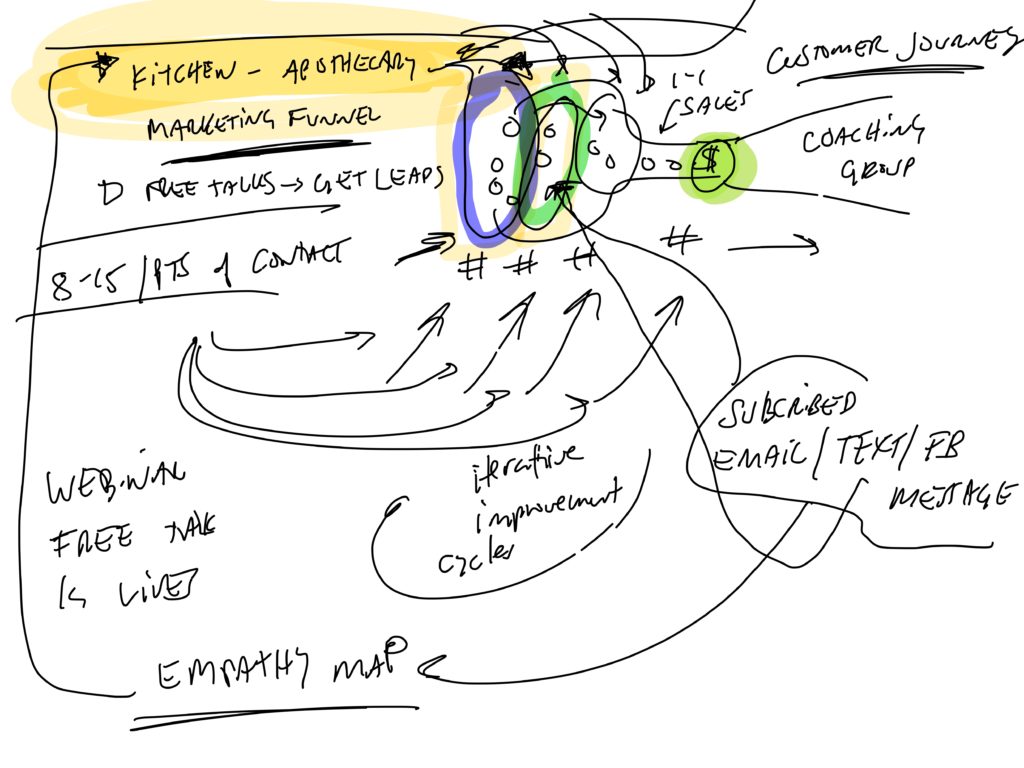 KITCHEN - APOTHECARY
MARKETING FUNNEL
D FREE TALKS → GET LEADS
8-15 / PTS of CONTACT
# # # #
CUSTOMER JOURNEY
1-1
SALES
$
COACHING
GROUP
SUBCRIBED
EMAIL / TEXT / FB
MESSAGE
iterative
improvement
cycles
WEBINAR
FREE TALK
IS LIVE
EMPATHY MAP